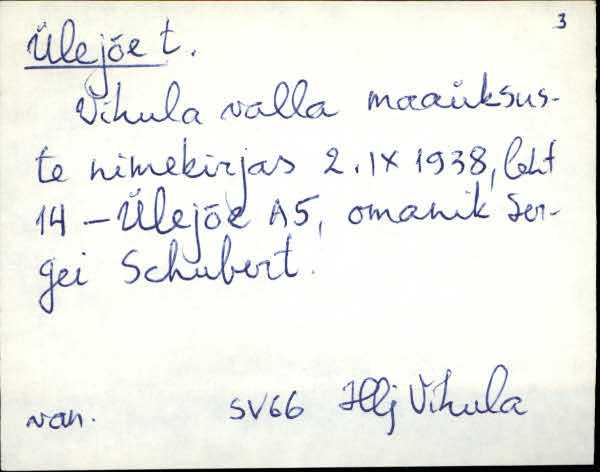 3
Ülejõe t.
Vihula valla maaüksus-
te nimekirjas 2.IX 1938, leht
14 – Ülejõe A5, omanik Ser-
gei Schubert.
van. SV66 Hlj Vihula